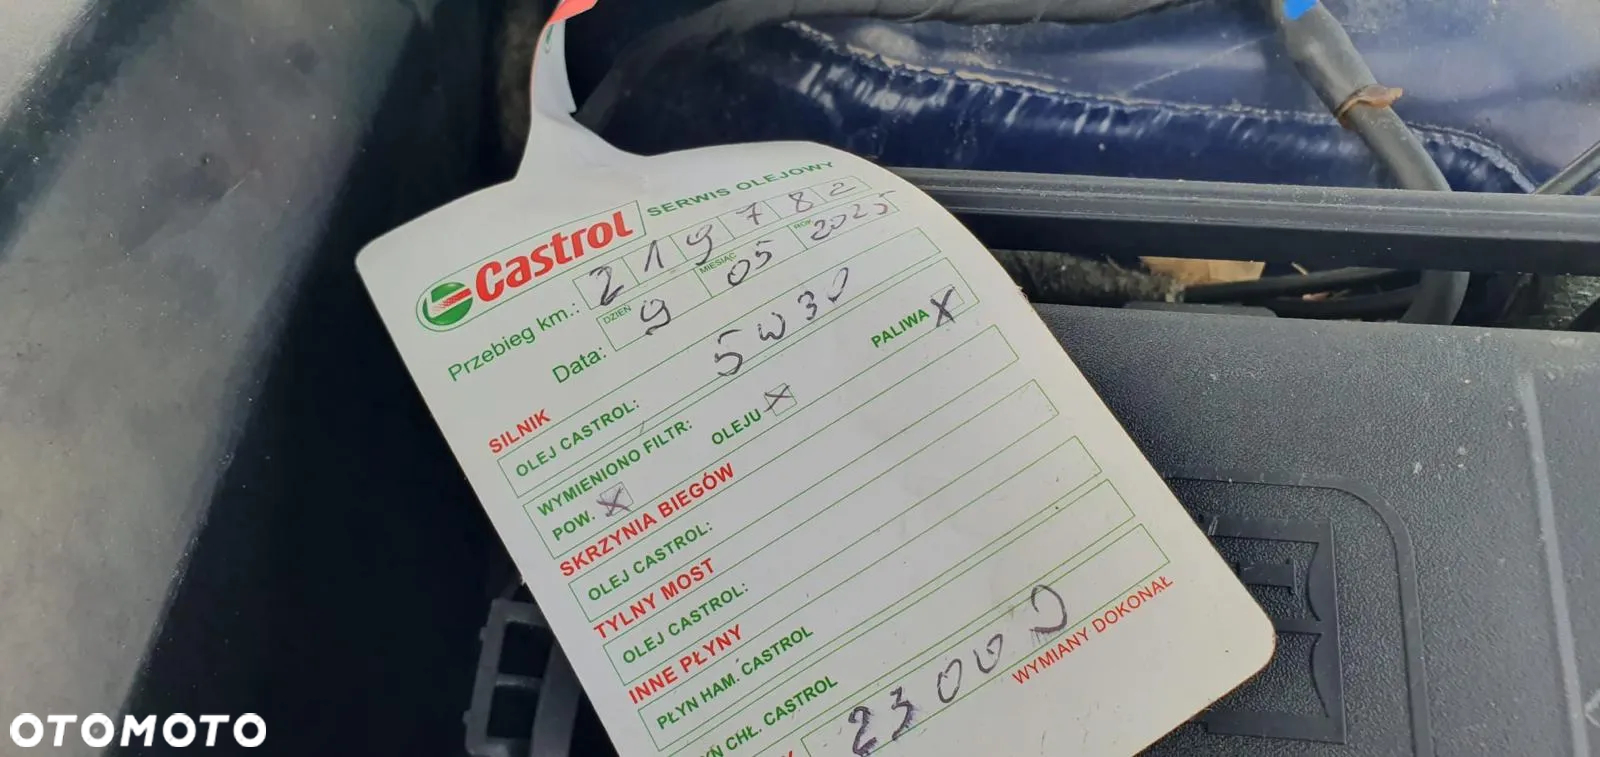 Castrol SERWIS OLEJOWY
Przebieg km.: 219782
DZIEŃ MIESIĄC ROK
Data: 9 05 2025
SILNIK
OLEJ CASTROL: 5W30
WYMIENIONO FILTR:
POW. X OLEJU X PALIWA X
SKRZYNIA BIEGÓW
OLEJ CASTROL:
TYLNY MOST
OLEJ CASTROL:
INNE PŁYNY
PŁYN HAM. CASTROL
CHŁ. CASTROL
23000
WYMIANY DOKONAŁ
OTOMOTO